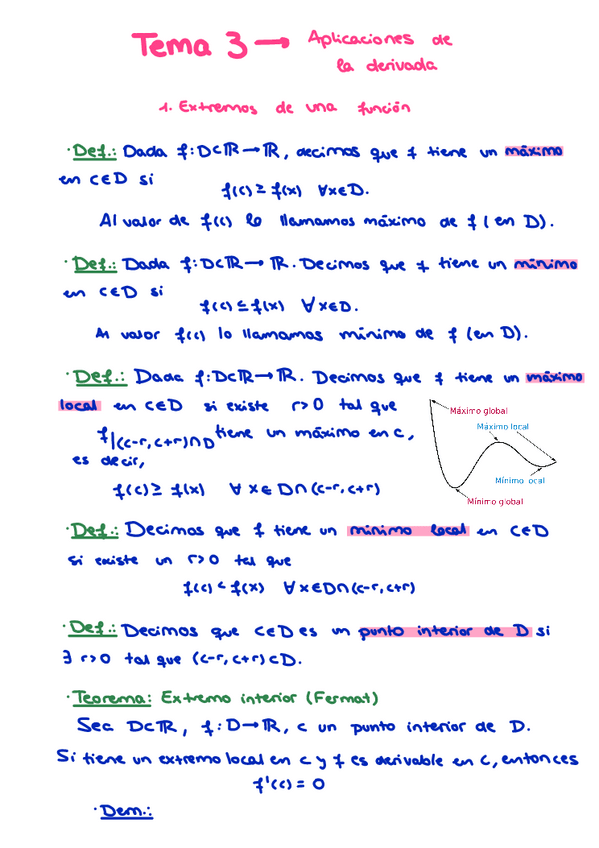 Tema 3 → Aplicaciones de
la derivada
1. Extremos de una función
· Def.: Dada f: D⊂ℝ → ℝ, decimos que f tiene un máximo
en c∈D si
f(c) ≥ f(x) ∀x∈D.
Al valor de f(c) lo llamamos máximo de f (en D).
· Def.: Dada f: D⊂ℝ → ℝ. Decimos que f tiene un mínimo
en c∈D si
f(c) ≤ f(x) ∀x∈D.
Al valor f(c) lo llamamos mínimo de f (en D).
· Def.: Dada f: D⊂ℝ → ℝ. Decimos que f tiene un máximo
local en c∈D si existe r>0 tal que
f|(c-r, c+r)∩D tiene un máximo en c,
es decir,
f(c) ≥ f(x) ∀x∈D∩(c-r, c+r)
Máximo global
Máximo local
Mínimo local
Mínimo global
· Def.: Decimos que f tiene un mínimo local en c∈D
si existe un r>0 tal que
f(c) < f(x) ∀x∈D∩(c-r, c+r)
· Def.: Decimos que c∈D es un punto interior de D si
∃ r>0 tal que (c-r, c+r)⊂D.
· Teorema: Extremo interior (Fermat)
Sea D⊂ℝ, f: D→ℝ, c un punto interior de D.
Si tiene un extremo local en c y f es derivable en c, entonces
f'(c) = 0
· Dem.: